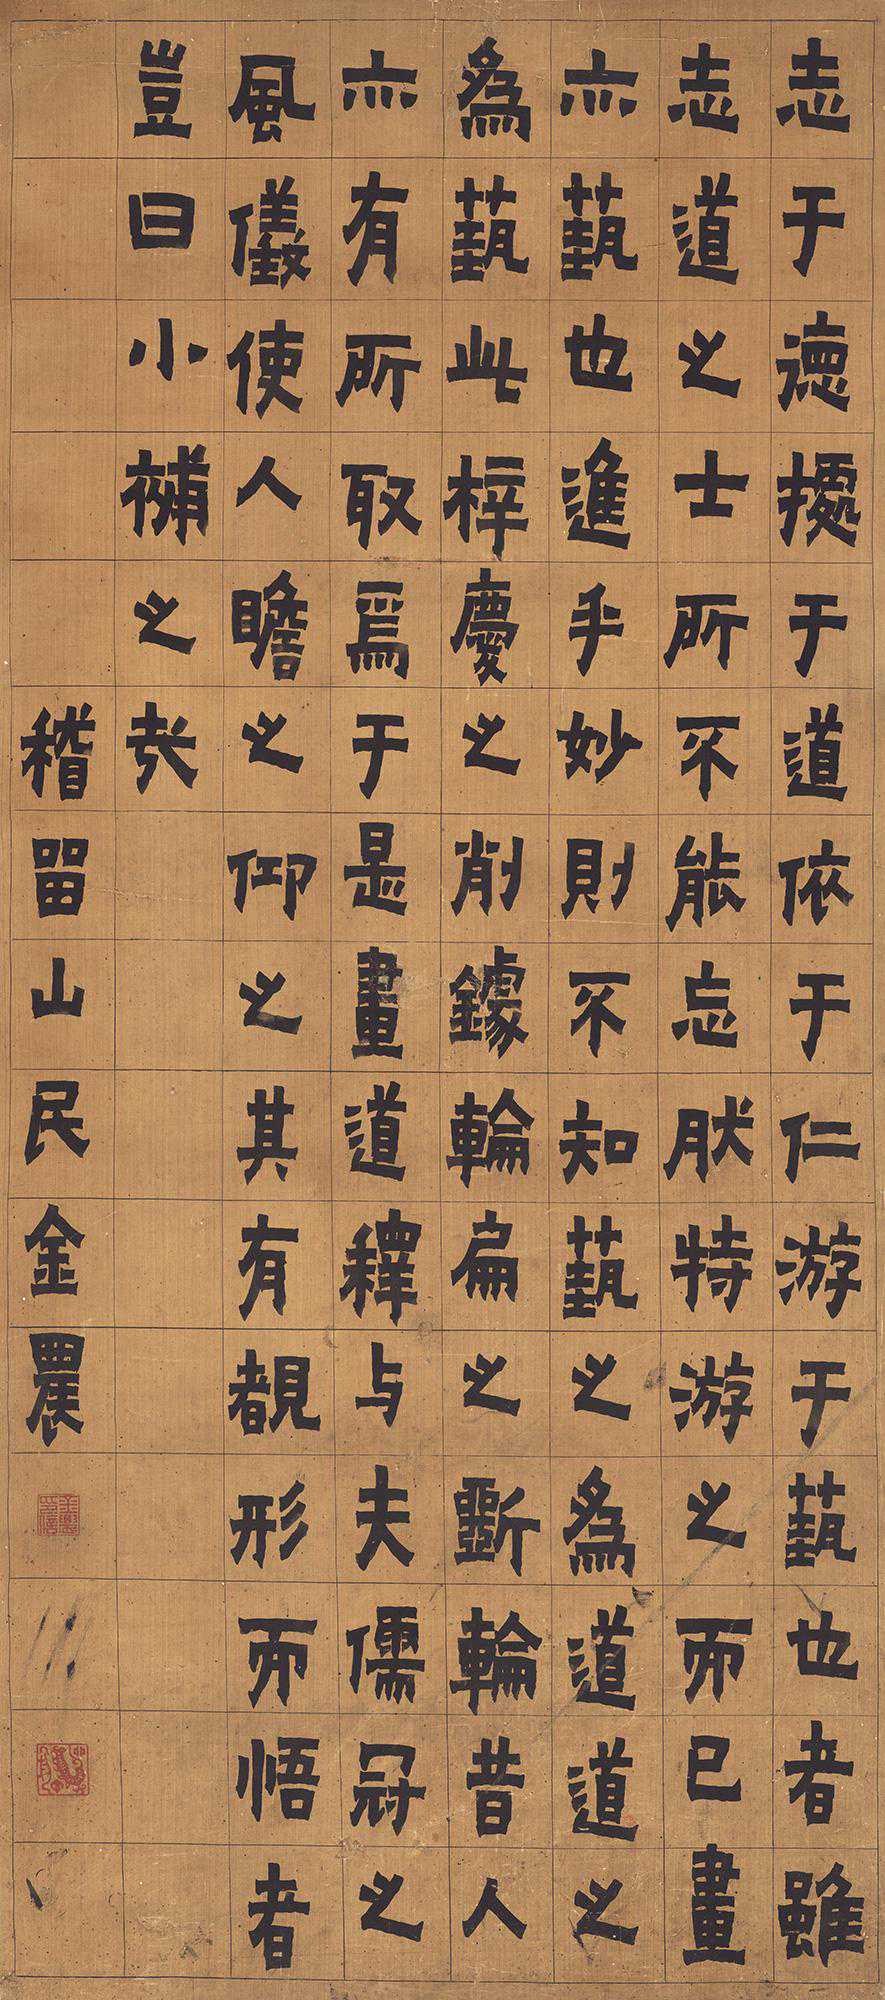 志于德據于道依于仁游于藝也者雖
志道之士所不能忘然特游之而已畫
亦藝也進乎妙則不知藝之為道道之
為藝此梓慶之削鐻輪扁之斲輪昔人
亦有所取焉于是畫道釋与夫儒冠之
風儀使人瞻之仰之其有覩形而悟者
豈曰小補之哉
稽留山民金農